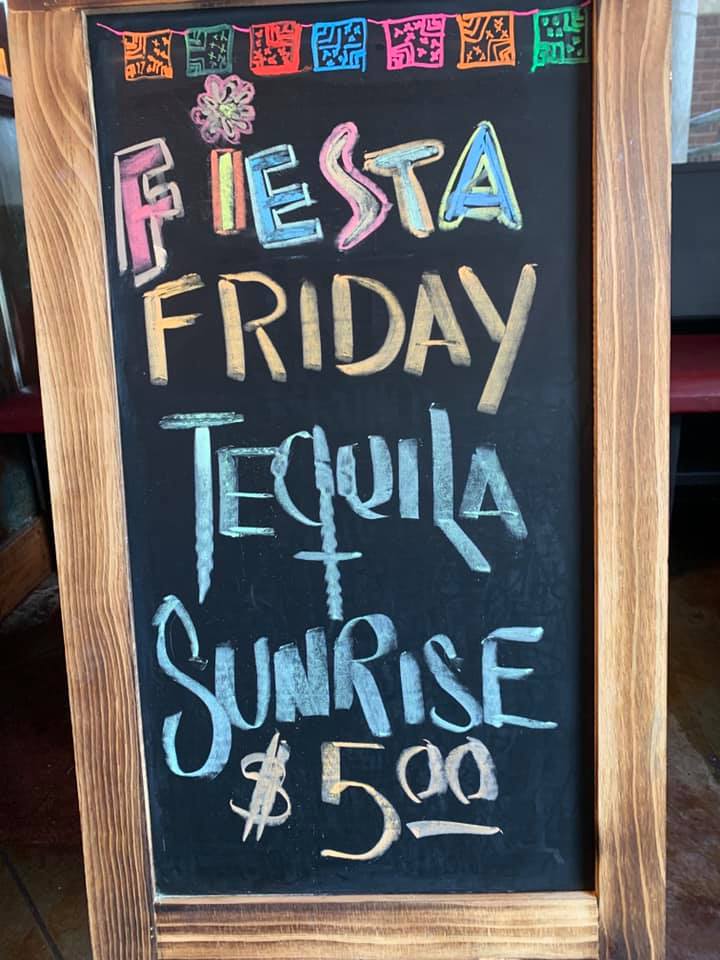 FIESTA
FRIDAY
TEQUILA
SUNRISE
$5.00